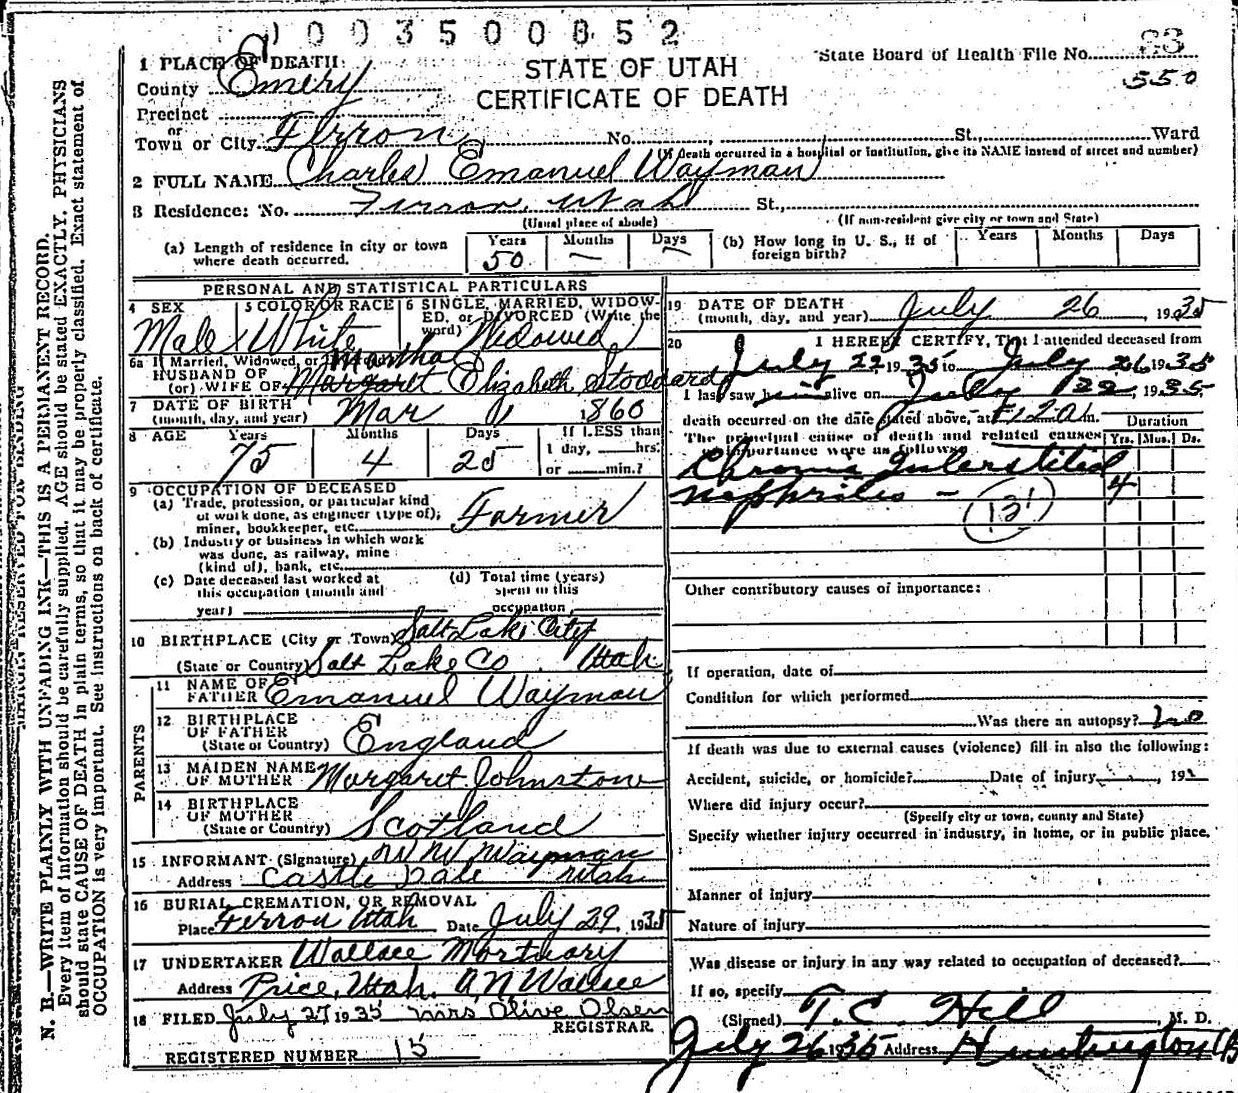 1003500852
State Board of Health File No. 83
550
STATE OF UTAH
CERTIFICATE OF DEATH
1 PLACE OF DEATH:
County Emery
Precinct
or
Town or City Ferron No. , St. Ward
(If death occurred in a hospital or institution, give its NAME instead of street and number)
2 FULL NAME Charles Emanuel Wayman
3 Residence: No. Ferron, Utah St.,
(Usual place of abode) (If non-resident give city or town and State)
(a) Length of residence in city or town where death occurred. Years 50 Months — Days —
(b) How long in U. S., if of foreign birth? Years Months Days
PERSONAL AND STATISTICAL PARTICULARS
4 SEX Male
5 COLOR OR RACE White
6 SINGLE, MARRIED, WIDOWED, or DIVORCED (Write the word) Widowed
6a If Married, Widowed, or Martha
HUSBAND OF
(or) WIFE OF Margaret Elizabeth Stoddard
7 DATE OF BIRTH
(month, day, and year) Mar 1, 1860
8 AGE Years 75 Months 4 Days 25 If LESS than 1 day, hrs. or min.?
9 OCCUPATION OF DECEASED
(a) Trade, profession, or particular kind
of work done, as engineer (type of);
miner, bookkeeper, etc. Farmer
(b) Industry or business in which work
was done, as railway, mine
(kind of), bank, etc.
(c) Date deceased last worked at
this occupation (month and
year)
(d) Total time (years)
spent in this
occupation
10 BIRTHPLACE (City or Town) Salt Lake City
(State or Country) Salt Lake Co Utah
PARENTS
11 NAME OF FATHER Emanuel Wayman
12 BIRTHPLACE OF FATHER
(State or Country) England
13 MAIDEN NAME OF MOTHER Margaret Johnston
14 BIRTHPLACE OF MOTHER
(State or Country) Scotland
15 INFORMANT (Signature) W W Wayman
Address Castle Dale Utah
16 BURIAL, CREMATION, OR REMOVAL
Place Ferron Utah Date July 29, 1935
17 UNDERTAKER Wallace Mortuary
Address Price, Utah. A N Wallace
18 FILED July 27 1935 Mrs Olive Olsen
REGISTRAR.
REGISTERED NUMBER 15
19 DATE OF DEATH
(month, day, and year) July 26, 1935
20 I HEREBY CERTIFY, That I attended deceased from
July 22 1935 to July 26 1935
I last saw him alive on July 22, 1935
death occurred on the date stated above, at m.
The principal cause of death and related causes
of importance were as follows:
Duration
Yrs. Mos. Ds.
Chronic Interstitial
Nephritis — 4
131
Other contributory causes of importance:
If operation, date of
Condition for which performed
Was there an autopsy? no
If death was due to external causes (violence) fill in also the following:
Accident, suicide, or homicide? Date of injury , 193
Where did injury occur?
(Specify city or town, county and State)
Specify whether injury occurred in industry, in home, or in public place.
Manner of injury
Nature of injury
Was disease or injury in any way related to occupation of deceased?
If so, specify
(Signed) T. C. Hill, M. D.
July 26 1935 Address Huntington
MARGIN RESERVED FOR BINDING
N. B.—WRITE PLAINLY WITH UNFADING INK—THIS IS A PERMANENT RECORD.
Every item of information should be carefully supplied. AGE should be stated EXACTLY. PHYSICIANS
should state CAUSE OF DEATH in plain terms, so that it may be properly classified. Exact statement of
OCCUPATION is very important. See instructions on back of certificate.